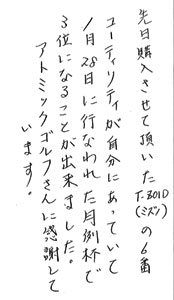 先日購入させて頂いたT-801D(ミズノ)の6番
ユーティリティが自分にあっていて
1月28日に行なわれた月例杯で
3位になることが出来ました。
アトミックゴルフさんに感謝して
います。